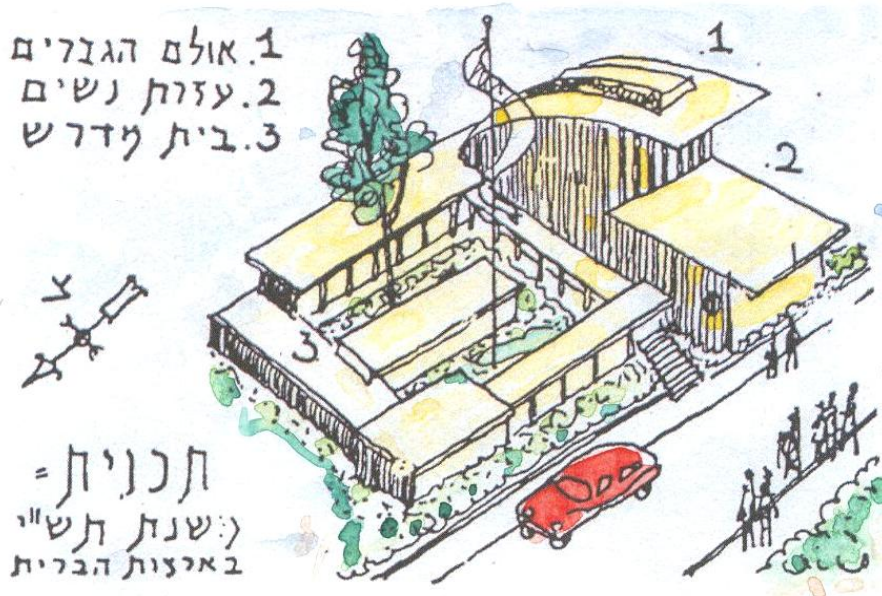 1. אולם הגברים
2. עזרת נשים
3. בית מדרש
1.
2.
3
צ
תכנית =
בשנת תש"י
בארצות הברית